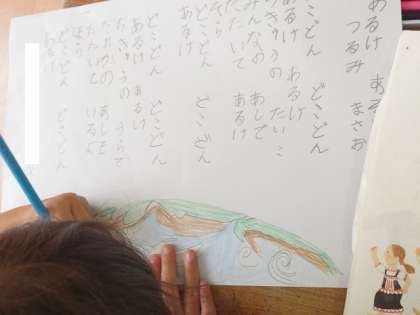 あるけ ある
つるみ まさお
どこどん どこどん
あるけ あるけ
ちきゅうの たいこ
みんなの あしで
たたいて あるけ
そら
どこどん どこどん
あるけ
どこどん どこどん
あるけ あるけ
ちきゅうの うらで
だれかの あしも
たたいて いるよ
ほら
どこどん どこどん
あるけ